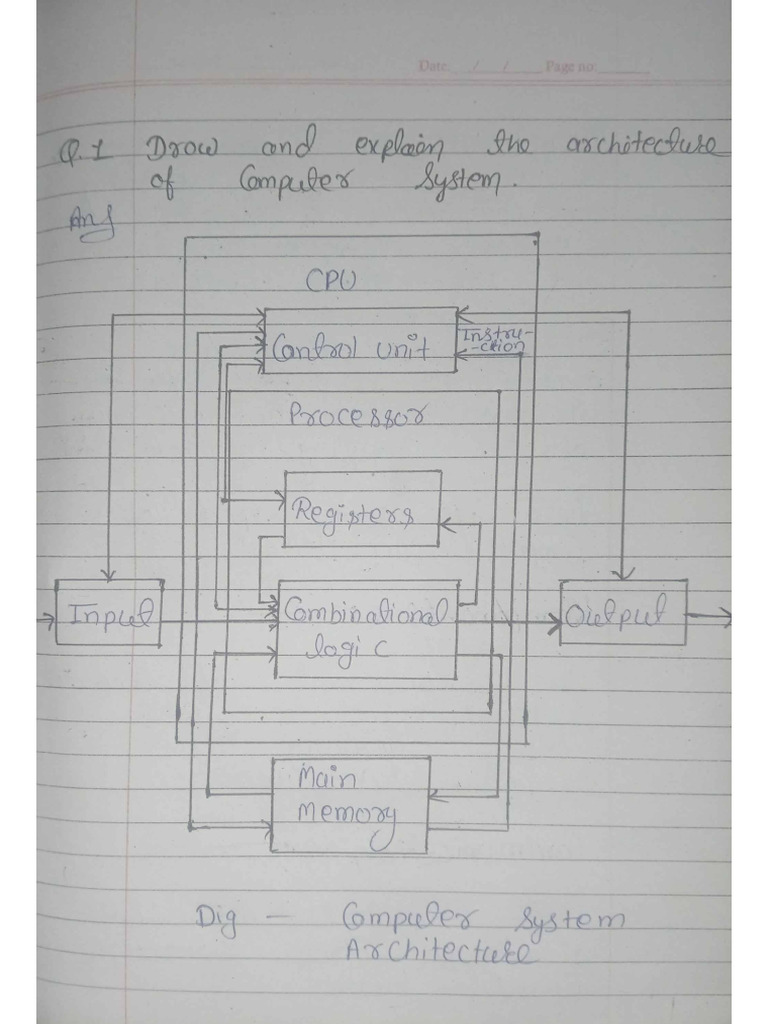 Date: / / Page no:
Q.1 Draw and explain the architecture
of Computer System.
Ans
CPU
Control unit
Instru-
-ction
Processor
Registers
Input
Combinational
logic
Output
Main
Memory
Dig — Computer System
Architecture